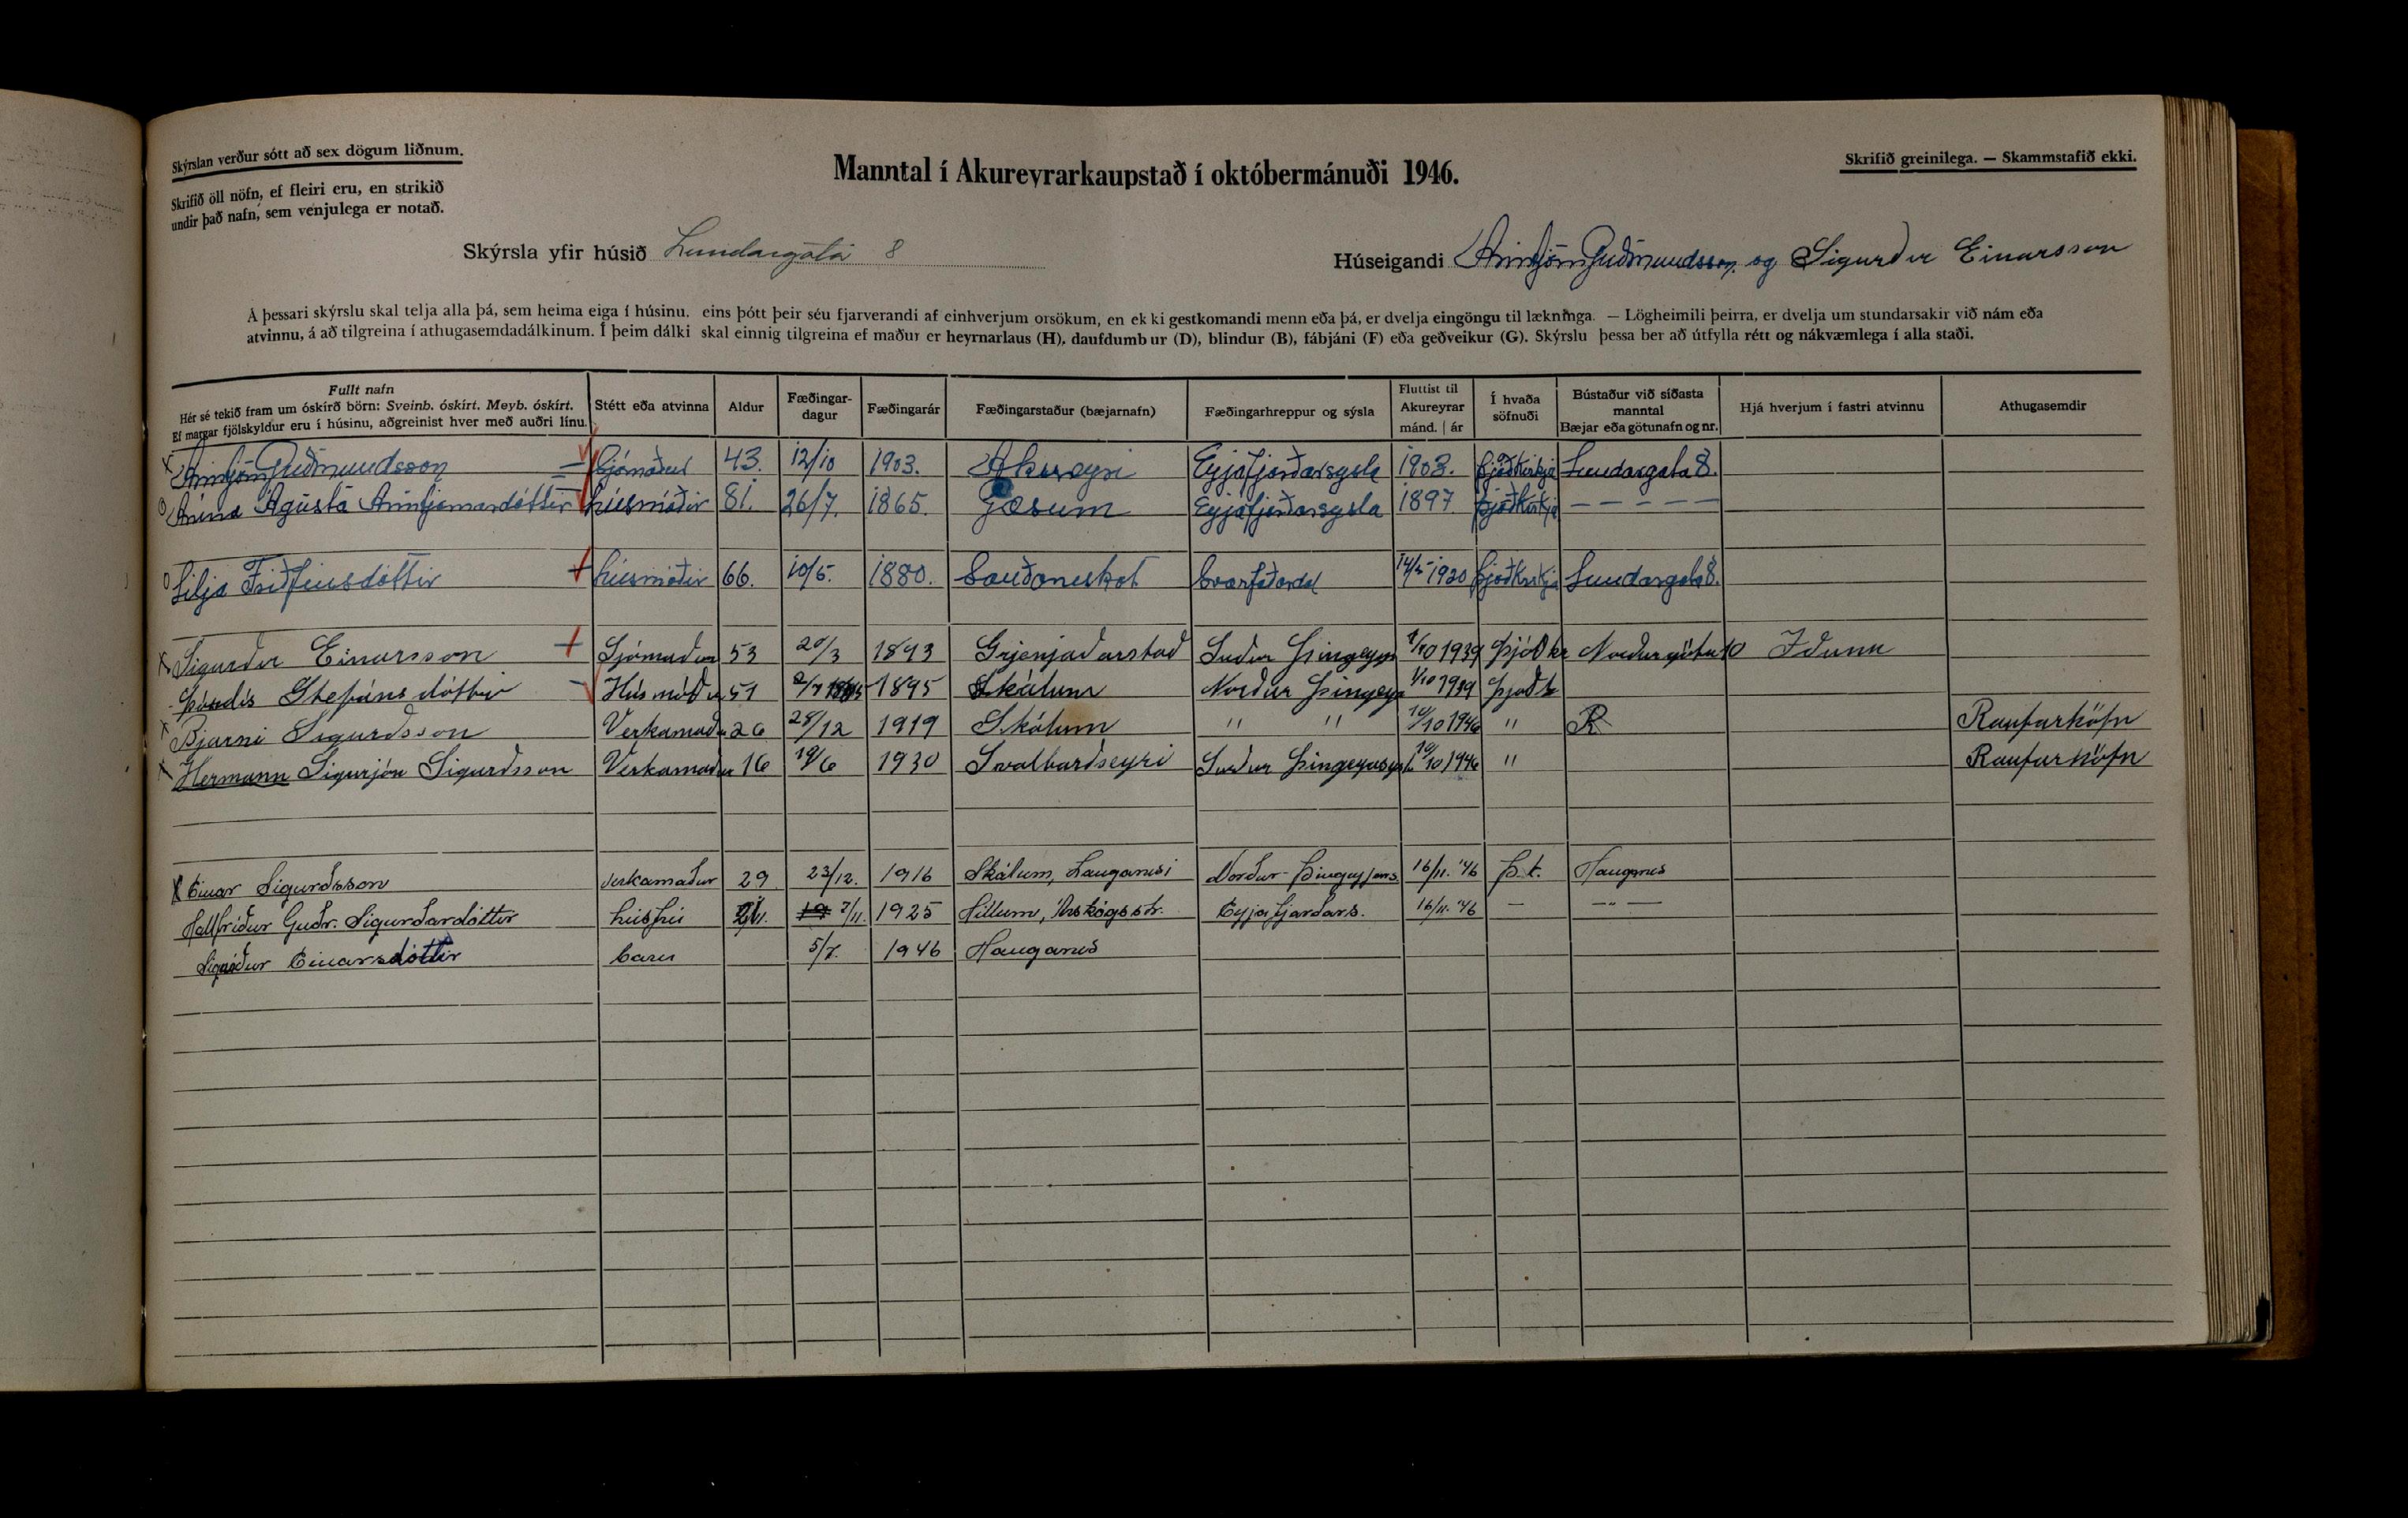 Skýrslan verður sótt að sex dögum liðnum.
Skrifið öll nöfn, ef fleiri eru, en strikið
undir það nafn, sem venjulega er notað.
Manntal í Akureyrarkaupstað í októbermánuði 1946.
Skrifið greinilega. — Skammstafið ekki.
Skýrsla yfir húsið Lundargata 8
Húseigandi Arinbjörn Guðmundsson og Sigurður Einarsson
Á þessari skýrslu skal telja alla þá, sem heima eiga í húsinu, eins þótt þeir séu fjarverandi af einhverjum orsökum, en ekki gestkomandi menn eða þá, er dvelja eingöngu til lækninga. — Lögheimili þeirra, er dvelja um stundarsakir við nám eða
atvinnu, á að tilgreina í athugasemdadálkinum. Í þeim dálki skal einnig tilgreina ef maður er heyrnarlaus (H), daufdumbur (D), blindur (B), fábjáni (F) eða geðveikur (G). Skýrslu þessa ber að útfylla rétt og nákvæmlega í alla staði.
Fullt nafn
Hér sé tekið fram um óskírð börn: Sveinb. óskírt. Meyb. óskírt.
Ef margar fjölskyldur eru í húsinu, aðgreinist hver með auðri línu.
Stétt eða atvinna
Aldur
Fæðingar-
dagur
Fæðingarár
Fæðingarstaður (bæjarnafn)
Fæðingarhreppur og sýsla
Fluttist til
Akureyrar
mánd. | ár
Í hvaða
söfnuði
Bústaður við síðasta
manntal
Bæjar eða götunafn og nr.
Hjá hverjum í fastri atvinnu
Athugasemdir
Arinbjörn Guðmundsson Sjómaður 43. 12/10 1903. Akureyri Eyjafjarðarsýsla 1903. Þjóðkirkja Lundargata 8.
Ágústa húsmóðir 81. 26/7. 1865. Gæsum Eyjafjarðarsýsla 1897 Þjóðkirkja — — — — —
Lilja Friðfinnsdóttir húsmóðir 66. 10/5. 1880. Sauðaneskot Svarfaðardal 1920 Þjóðkirkja Lundargata 8.
Sigurður Einarsson Sjómaður 53 20/3 1893 Grjenjaðarstað Suður Þingeyjs 1/10 1939 Þjóðkr Norðurgötu 10 Iðunn
Þórdís Stefánsdóttir Húsmóðir 51 1895 Skálum Norður Þingeyja 1/10 1939 Þjóðk
Bjarni Sigurðsson Verkamaður 26 28/12 1919 Skálum " " 10/10 1946 " R Raufarhöfn
Hermann Sigurjón Sigurðsson Verkamaður 16 19/6 1930 Svalbarðseyri Suður Þingeyjasýsl 10/10 1946 " Raufarhöfn
Einar Sigurðsson verkamaður 29 23/12. 1916 Skálum, Langanesi Norður-Þingeyjars. 16/11. '46 Þ.k. Hauganes
Hallfríður Guðr. Sigurðardóttir húsfrú 21. 7/11. 1925 Hillum, Árskógsstr. Eyjafjarðars. 16/11. '46 — —"—
Sigríður Einarsdóttir barn 5/7. 1946 Hauganes